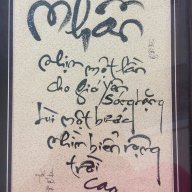 nhẫn
nhịn một lần
cho gió yên
sóng lặng
lùi một bước
nhìn biển rộng
trời
cao